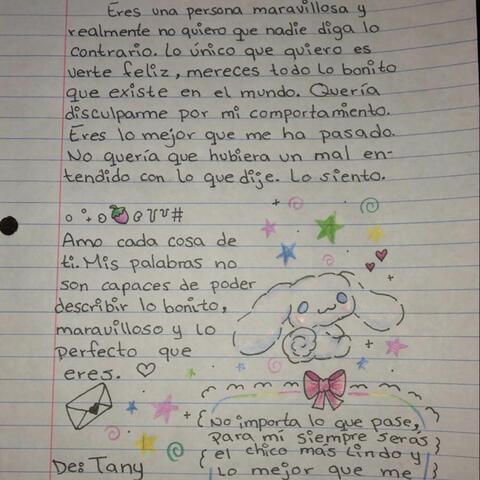 Eres una persona maravillosa y
realmente no quiero que nadie diga lo
contrario. Lo único que quiero es
verte feliz, mereces todo lo bonito
que existe en el mundo. Quería
disculparme por mi comportamiento.
Eres lo mejor que me ha pasado.
No quería que hubiera un mal en-
tendido con lo que dije. Lo siento.
Amo cada cosa de
ti. Mis palabras no
son capaces de poder
describir lo bonito,
maravilloso y lo
perfecto que
eres. ♡
No importa lo que pase,
para mí siempre serás
el chico más lindo y
lo mejor que me
De: Tany